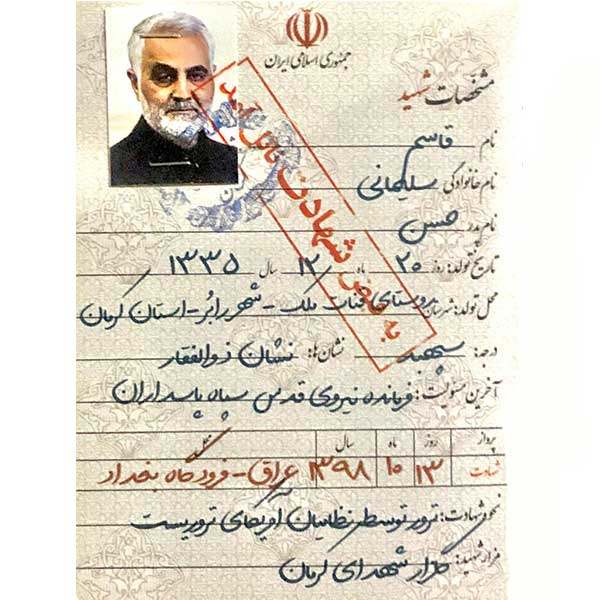 جمهوری اسلامی ایران
مشخصات شهید
نام قاسم
نام خانوادگی سلیمانی
نام پدر حسن
تاریخ تولد: روز ۲۰ ماه ۱۲ سال ۱۳۳۵
محل تولد: شهرستان روستای قنات ملک - شهر رابُر - استان کرمان
درجه: سپهبد نشان‌ها: نشان ذوالفقار
آخرین مسئولیت: فرمانده نیروی قدس سپاه پاسداران
پرواز روز ماه سال محل
شهادت ۱۳ ۱۰ ۱۳۹۸ عراق - فرودگاه بغداد
نحوه شهادت: ترور توسط نظامیان آمریکای تروریست
مزار شهید: گلزار شهدای کرمان
به فیض شهادت نائل آمد